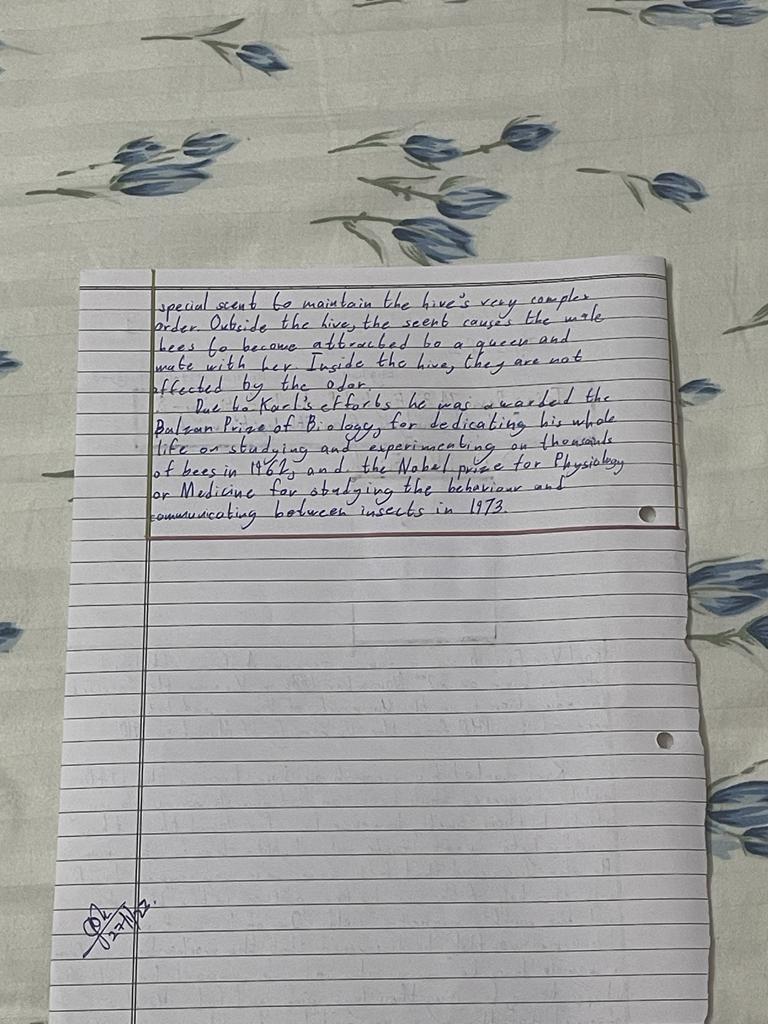 special scent to maintain the hive's very complex
order. Outside the hive, the scent causes the male
bees to become attracted to a queen and
mate with her. Inside the hive, they are not
affected by the odor.
Due to Karl's efforts he was awarded the
Balzan Prize of Biology, for dedicating his whole
life on studying and experimenting on thousands
of bees in 1962, and the Nobel prize for Physiology
or Medicine for studying the behaviour and
communicating between insects in 1973.